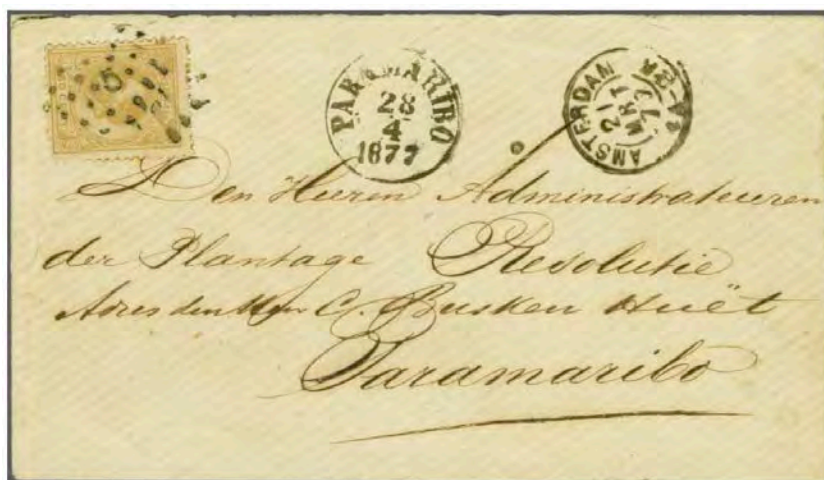 PARAMARIBO
28
4
1877
AMSTERDAM
21
MRT
77
Den Heeren Administrateuren
der Plantage Resolutie
Adres den Heer C. Busken Huët
Paramaribo